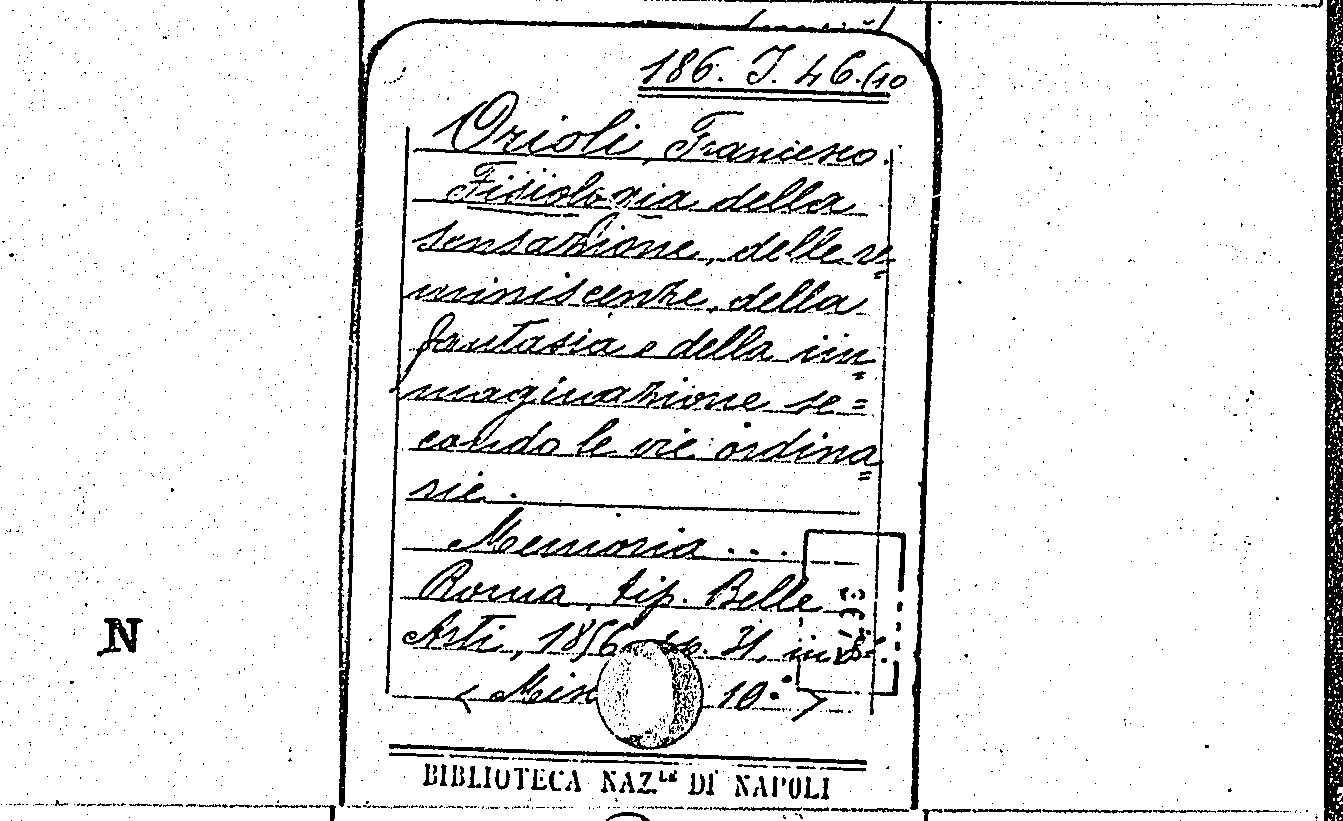 186. J. 46.(10
Orioli, Francesco.
Fisiologia della
sensazione, delle re=
miniscenze, della
fantasia e della im=
maginazione se=
condo le vie ordina=
rie.
Memoria ...
Roma, tip. Belle
Arti, 1856, pp. 31, in 8º
(Misc 10º)
N
BIBLIOTECA NAZ.LE DI NAPOLI